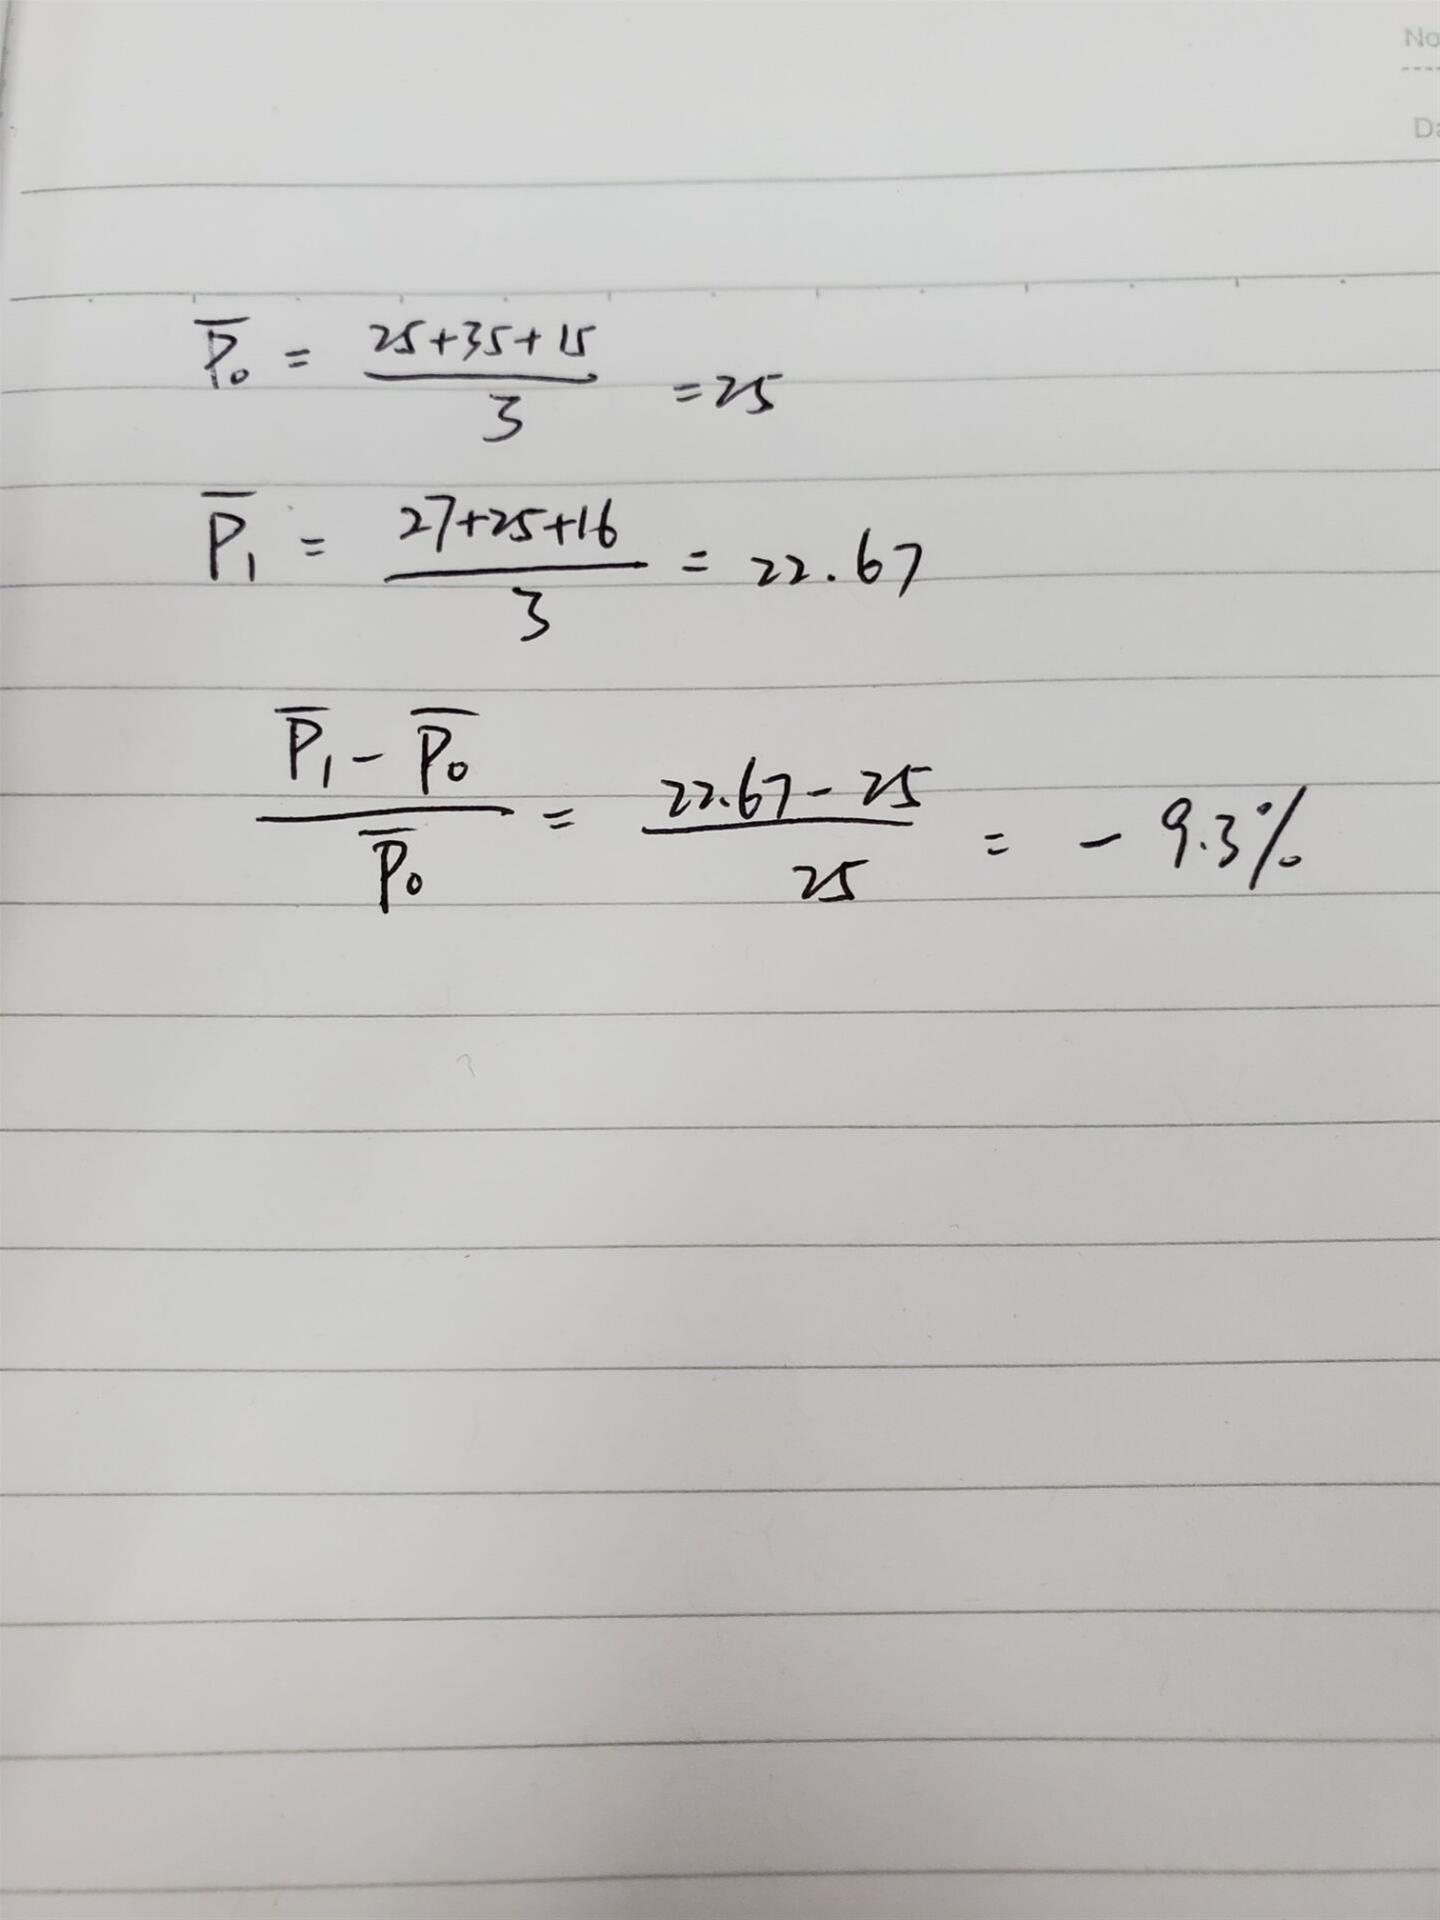 No
Da
P̅₀ = (25+35+15)/3 = 25
P̅₁ = (27+25+16)/3 = 22.67
(P̅₁ - P̅₀)/P̅₀ = (22.67 - 25)/25 = - 9.3%